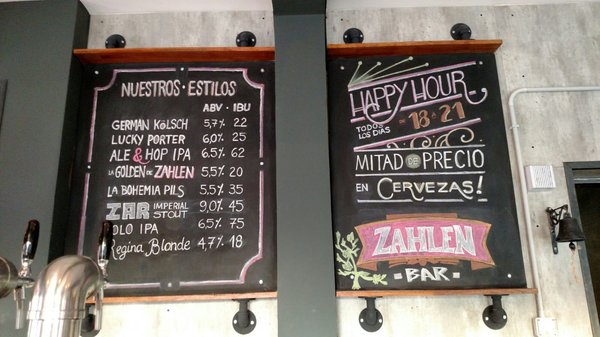 NUESTROS · ESTILOS
ABV · IBU
GERMAN KÖLSCH 5,7% 22
LUCKY PORTER 6,0% 25
ALE & HOP IPA 6,5% 62
LA GOLDEN DE ZAHLEN 5,5% 20
LA BOHEMIA PILS 5,5% 35
ZAR IMPERIAL STOUT 9,0% 45
OLO IPA 6,5% 75
Regina Blonde 4,7% 18
HAPPY HOUR
TODOS LOS DÍAS
18 A 21
MITAD DE PRECIO
EN CERVEZAS!
ZAHLEN
- BAR -